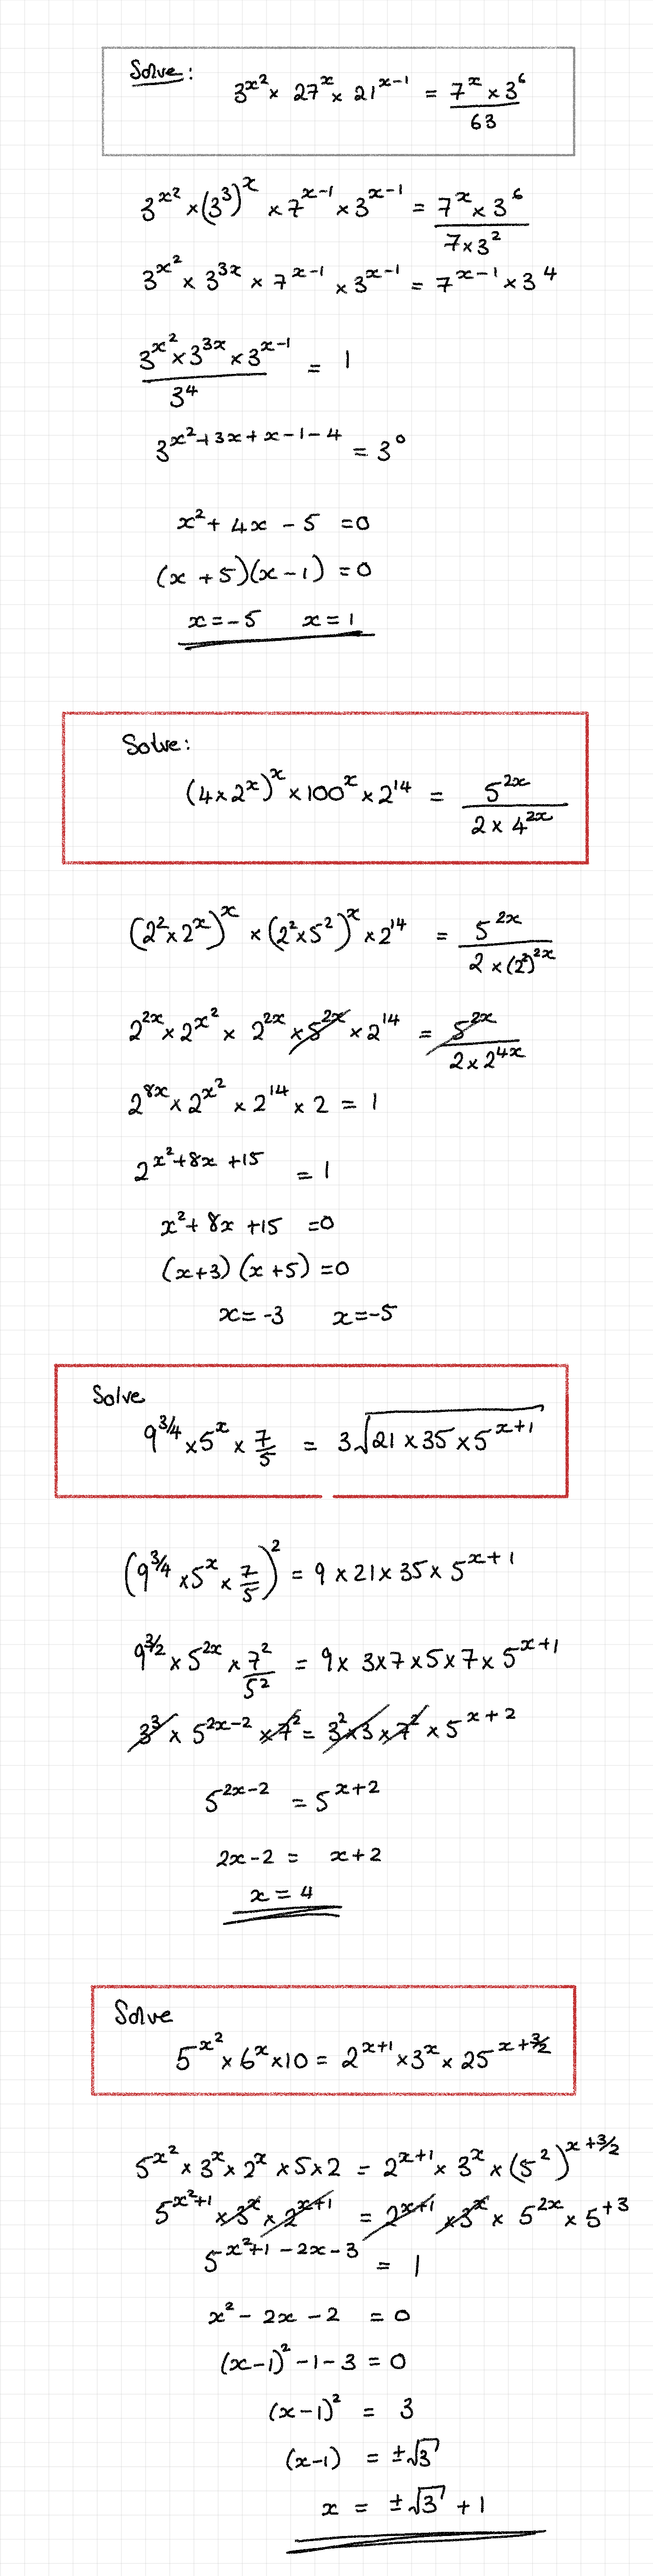 Solve:
3^{x^2} × 27^x × 21^{x-1} = \frac{7^x × 3^6}{63}
3^{x^2} × (3^3)^x × 7^{x-1} × 3^{x-1} = \frac{7^x × 3^6}{7 × 3^2}
3^{x^2} × 3^{3x} × 7^{x-1} × 3^{x-1} = 7^{x-1} × 3^4
\frac{3^{x^2} × 3^{3x} × 3^{x-1}}{3^4} = 1
3^{x^2+3x+x-1-4} = 3^0
x^2 + 4x - 5 = 0
(x + 5)(x - 1) = 0
x = -5 x = 1
Solve:
(4 × 2^x)^x × 100^x × 2^{14} = \frac{5^{2x}}{2 × 4^{2x}}
(2^2 × 2^x)^x × (2^2 × 5^2)^x × 2^{14} = \frac{5^{2x}}{2 × (2^2)^{2x}}
2^{2x} × 2^{x^2} × 2^{2x} × 5^{2x} × 2^{14} = \frac{5^{2x}}{2 × 2^{4x}}
2^{8x} × 2^{x^2} × 2^{14} × 2 = 1
2^{x^2+8x+15} = 1
x^2 + 8x + 15 = 0
(x+3)(x+5) = 0
x = -3 x = -5
Solve
9^{3/4} × 5^x × \frac{7}{5} = 3\sqrt{21 × 35 × 5^{x+1}}
(9^{3/4} × 5^x × \frac{7}{5})^2 = 9 × 21 × 35 × 5^{x+1}
9^{3/2} × 5^{2x} × \frac{7^2}{5^2} = 9 × 3 × 7 × 5 × 7 × 5^{x+1}
3^3 × 5^{2x-2} × 7^2 = 3^2 × 3 × 7^2 × 5^{x+2}
5^{2x-2} = 5^{x+2}
2x - 2 = x + 2
x = 4
Solve
5^{x^2} × 6^x × 10 = 2^{x+1} × 3^x × 25^{x+3/2}
5^{x^2} × 3^x × 2^x × 5 × 2 = 2^{x+1} × 3^x × (5^2)^{x+3/2}
5^{x^2+1} × 3^x × 2^{x+1} = 2^{x+1} × 3^x × 5^{2x} × 5^{+3}
5^{x^2+1-2x-3} = 1
x^2 - 2x - 2 = 0
(x-1)^2 - 1 - 3 = 0
(x-1)^2 = 3
(x-1) = ±\sqrt{3}
x = ±\sqrt{3} + 1